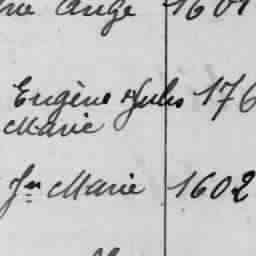 Ange 1601
Eugène Jules 176
Marie
Jn Marie 1602